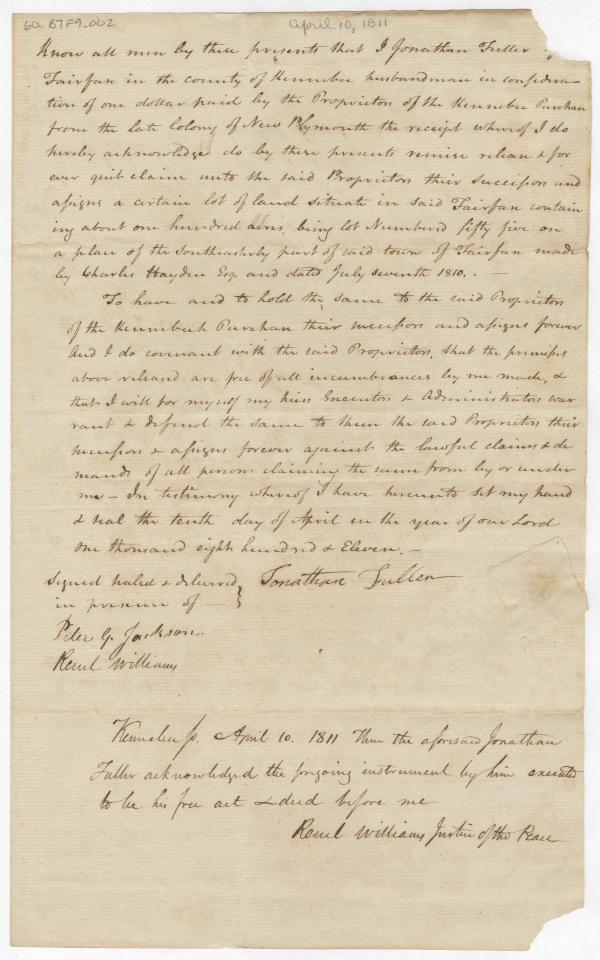 6a B7F9_002 April 10, 1811
Know all men by these presents that I Jonathan Fuller
Fairfax in the county of Kennebec husbandman in considera-
tion of one dollar paid by the Proprietors of the Kennebec Purchase
from the late Colony of New Plymouth the receipt whereof I do
hereby acknowledge do by these presents remise release & for
ever quit claim unto the said Proprietors their successors and
assigns a certain lot of land situate in said Fairfax contain
ing about one hundred acres, being lot Numbered fifty five on
a plan of the Southeasterly part of said town of Fairfax made
by Charles Hayden Esq. and dated July seventh 1810. -
To have and to hold the same to the said Proprietors
of the Kennebeck Purchase their successors and assigns forever
And I do covenant with the said Proprietors, that the premises
above released are free of all incumbrances by me made, &
that I will for myself my heirs Executors & Administrators war
rant & defend the same to them the said Proprietors their
successors & assigns forever against the lawful claims & de
mands of all persons claiming the same from by or under
me - In testimony whereof I have hereunto set my hand
& seal the tenth day of April in the year of our Lord
One thousand eight hundred & Eleven. -
Signed sealed & delivered } Jonathan Fuller
in presence of -
Peter G. Jackson.
Reuel Williams
Kennebec ss. April 10. 1811 Then the aforesaid Jonathan
Fuller acknowledged the foregoing instrument by him executed
to be his free act & deed before me
Reuel Williams Justice of the Peace